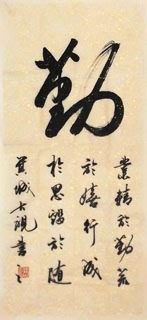 勤
業精於勤荒
於嬉行成
於思毀於随
城 書